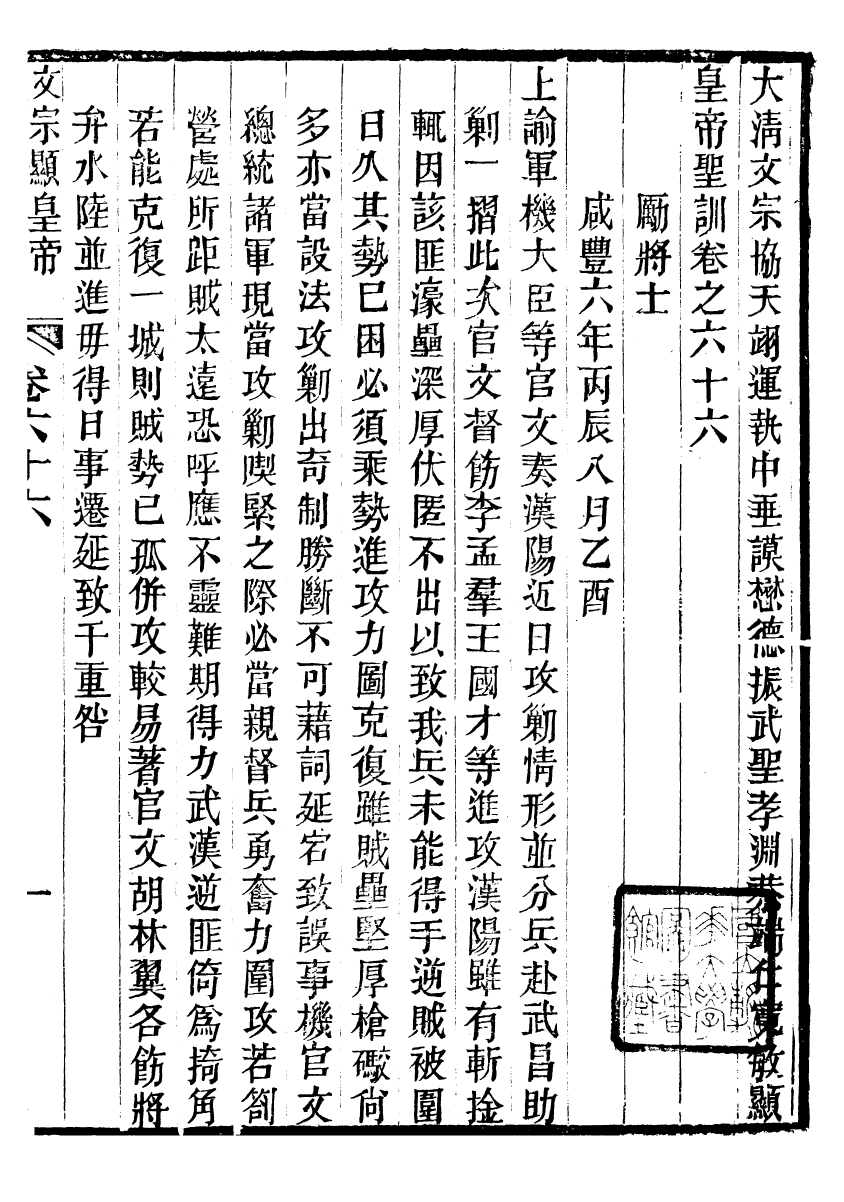 大淸文宗協天翊運執中垂謨懋德振武聖孝淵恭端仁寬敏顯
皇帝聖訓卷之六十六
勵將士
咸豐六年丙辰八月乙酉
上諭軍機大臣等官文奏漢陽近日攻勦情形並分兵赴武昌助
勦一摺此次官文督飭李孟羣王國才等進攻漢陽雖有斬捡
輒因該匪濠壘深厚伏匿不出以致我兵未能得手逆賊被圍
日久其勢已困必須乘勢進攻力圖克復雖賊壘堅厚槍礮尙
多亦當設法攻勦出奇制勝斷不可藉詞延宕致誤事機官文
總統諸軍現當攻勦喫緊之際必當親督兵勇奮力圍攻若劄
營處所距賊太遠恐呼應不靈難期得力武漢逆匪倚爲掎角
若能克復一城則賊勢已孤併攻較易著官文胡林翼各飭將
弁水陸並進毋得日事遷延致干重咎
文宗顯皇帝
卷六十六
一